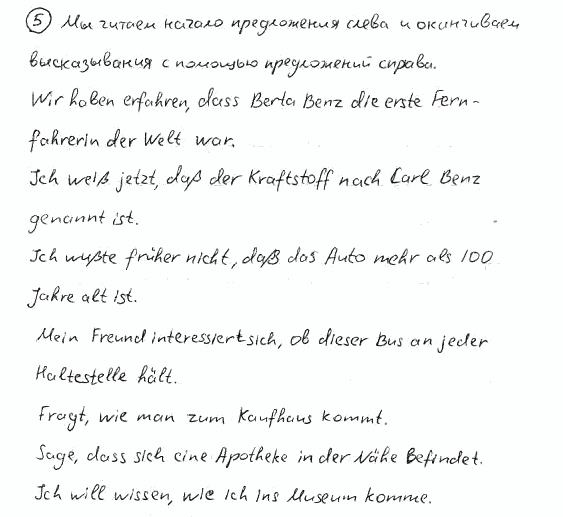 ⑤ Мы читаем начало предложения слева и оканчиваем
высказывания с помощью предложений справа.
Wir haben erfahren, dass Berta Benz die erste Fern-
fahrerin der Welt war.
Ich weiß jetzt, daß der Kraftstoff nach Carl Benz
genannt ist.
Ich wußte früher nicht, daß das Auto mehr als 100
Jahre alt ist.
Mein Freund interessiert sich, ob dieser Bus an jeder
Haltestelle hält.
Fragt, wie man zum Kaufhaus kommt.
Sage, dass sich eine Apotheke in der Nähe Befindet.
Ich will wissen, wie ich ins Museum komme.